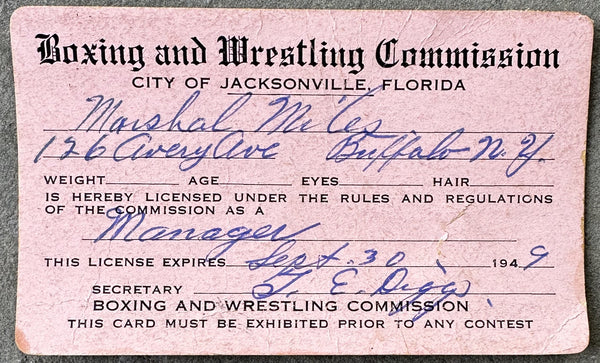 Boxing and Wrestling Commission
CITY OF JACKSONVILLE, FLORIDA
Marshal Miles
126 Avery Ave Buffalo N.Y.
WEIGHT AGE EYES HAIR
IS HEREBY LICENSED UNDER THE RULES AND REGULATIONS
OF THE COMMISSION AS A
Manager
THIS LICENSE EXPIRES Sept. 30 1949
SECRETARY T. E. Diggs
BOXING AND WRESTLING COMMISSION
THIS CARD MUST BE EXHIBITED PRIOR TO ANY CONTEST